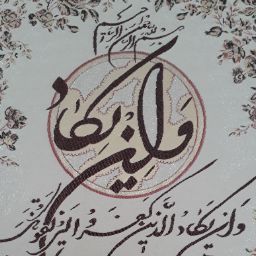 بسم الله الرحمن الرحیم
وان یکاد
وان یکاد الذین کفروا لیزلقونک